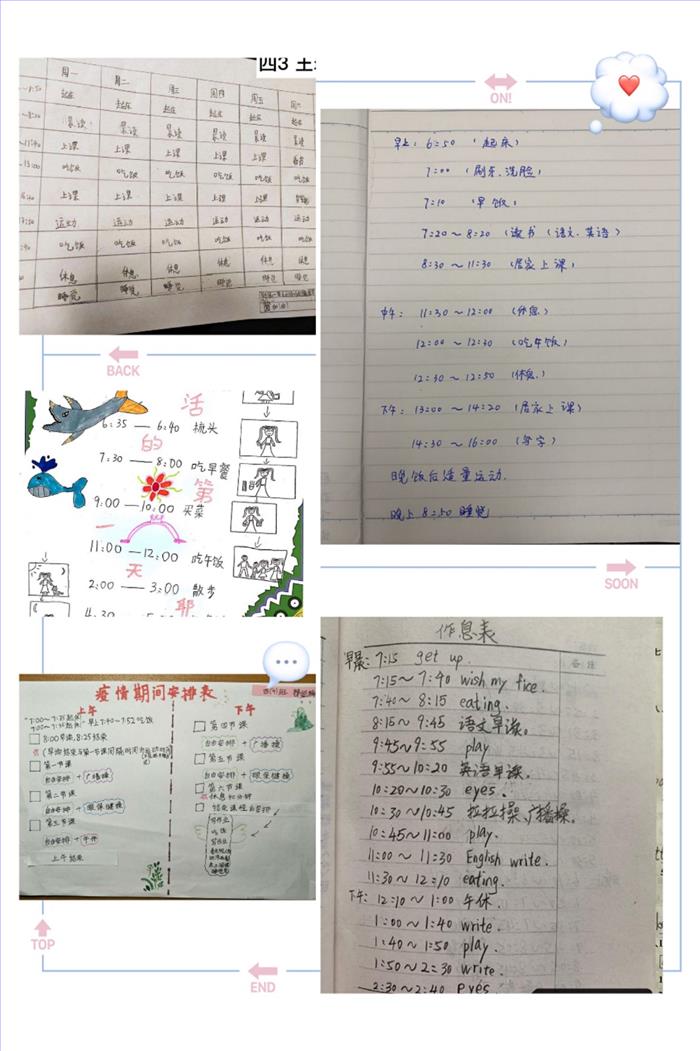 四3 王
周一 周二 周三 周四 周五 周六
~8:50 起床 起床 起床 起床 起床 起床
~8:20 晨读 晨读 晨读 晨读 晨读 晨读
~11:40 上课 上课 上课 上课 上课
~13:00 吃饭 吃饭 吃饭 吃饭 吃饭 吃饭
上课 上课 上课 上课 上课
运动 运动 运动 运动 运动 运动
吃饭 吃饭 吃饭 吃饭 吃饭 吃饭
休息 休息 休息 休息 休息 休息
睡觉 睡觉 睡觉 睡觉 睡觉 睡觉
ON!
早上: 6:50 (起床)
7:00 (刷牙.洗脸)
7:10 (早饭)
7:20~8:20 (读书(语文.英语)
8:30~11:30 (居家上课)
中午: 11:30~12:00 (休息)
12:00~12:30 (吃午饭)
12:30~12:50 (休息)
下午: 13:00~14:20 (居家上课)
14:30~16:00 (写字)
晚饭后适量运动.
晚上8:50 睡觉
BACK
活的第一天
6:35—6:40 梳头
7:30—8:00 吃早餐
9:00—10:00 买菜
11:00—12:00 吃午饭
2:00—3:00 散步
4:30
SOON
疫情期间安排表
上午
8:00早读,8:25结束
第一节课
自由安排+广播操
第二节课
自由安排+眼保健操
第三节课
自由安排+午休
上午结束
下午
第四节课
自由安排+广播操
第五节课
自由安排+眼保健操
第六节课
休息10分钟
结束课程自安排
写作业
吃饭
写作业
TOP
END
作息表
备注
早晨: 7:15 get up.
7:15~7:40 wish my fice.
7:40~8:15 eating.
8:15~9:45 语文早读。
9:45~9:55 play
9:55~10:20 英语早读.
10:20~10:30 eyes.
10:30~10:45 拉拉操、广播操。
10:45~11:00 play.
11:00~11:30 English write.
11:30~12:10 eating.
下午: 12:10~1:00 午休.
1:00~1:40 write.
1:40~1:50 play.
1:50~2:30 write.
2:30~2:40 eyes